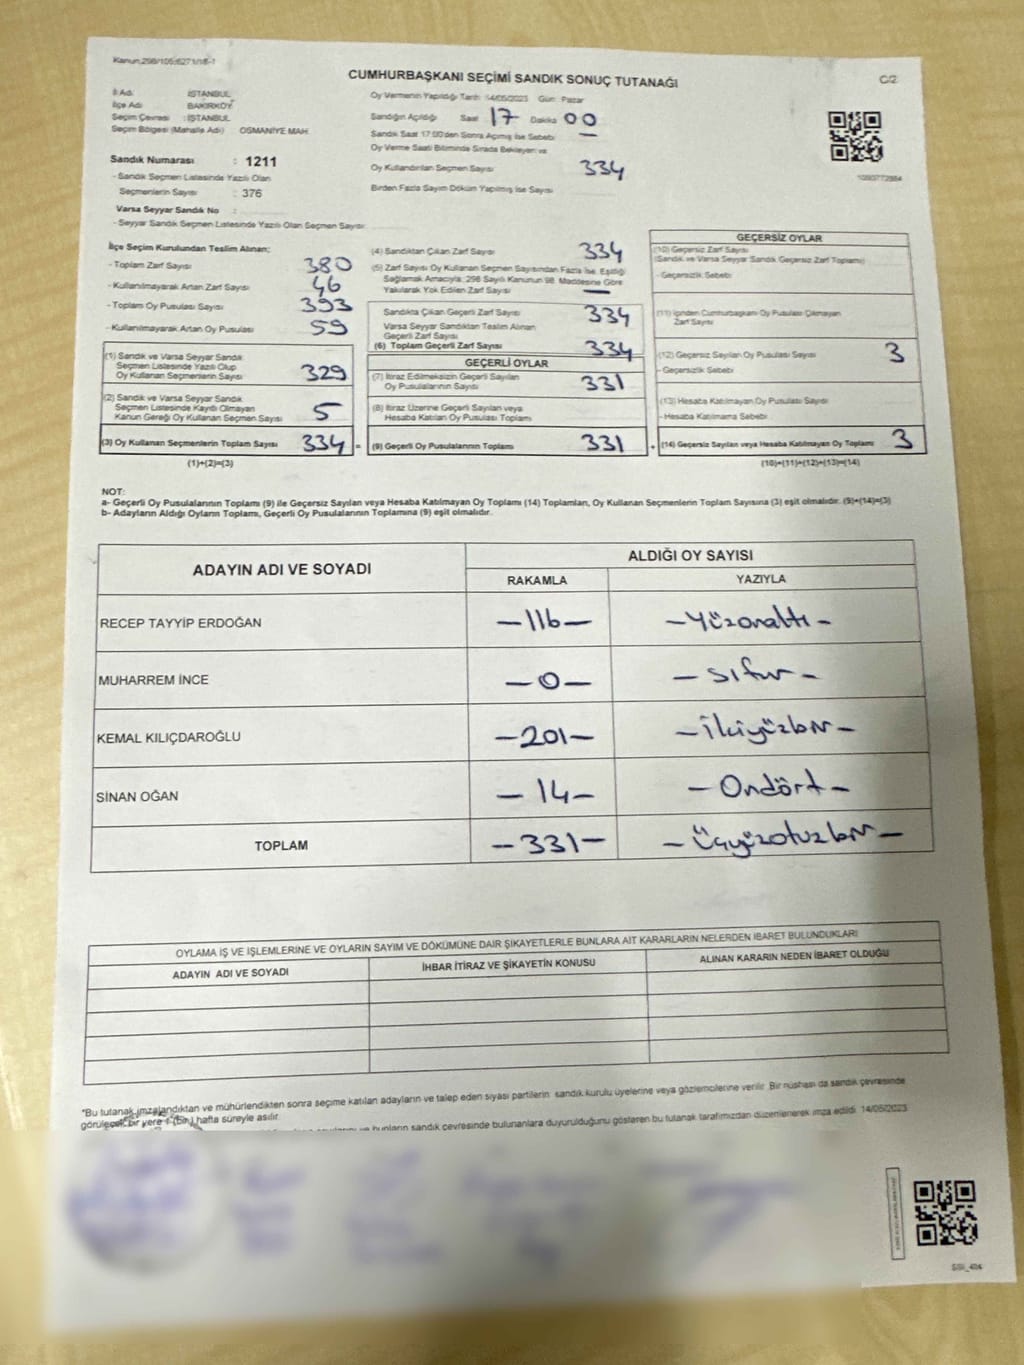 Kanun:298/105;6271/18-1
CUMHURBAŞKANI SEÇİMİ SANDIK SONUÇ TUTANAĞI
C/2
İl Adı : İSTANBUL
İlçe Adı : BAKIRKÖY
Seçim Çevresi : İSTANBUL
Seçim Bölgesi (Mahalle Adı) OSMANİYE MAH.
Sandık Numarası : 1211
- Sandık Seçmen Listesinde Yazılı Olan
Seçmenlerin Sayısı : 376
Varsa Seyyar Sandık No :
- Seyyar Sandık Seçmen Listesinde Yazılı Olan Seçmen Sayısı:
Oy Vermenin Yapıldığı Tarih: 14/05/2023 Gün: Pazar
Sandığın Açıldığı Saat 17 Dakika 00
Sandık Saat 17:00'den Sonra Açılmış İse Sebebi: —
Oy Verme Saati Bitiminde Sırada Bekleyen ve
Oy Kullandırılan Seçmen Sayısı 334
Birden Fazla Sayım Döküm Yapılmış İse Sayısı
1093772884
İlçe Seçim Kurulundan Teslim Alınan;
- Toplam Zarf Sayısı 380
- Kullanılmayarak Artan Zarf Sayısı 46
- Toplam Oy Pusulası Sayısı 393
- Kullanılmayarak Artan Oy Pusulası 59
(1) Sandık ve Varsa Seyyar Sandık
Seçmen Listesinde Yazılı Olup
Oy Kullanan Seçmenlerin Sayısı 329
(2) Sandık ve Varsa Seyyar Sandık
Seçmen Listesinde Kayıtlı Olmayan
Kanun Gereği Oy Kullanan Seçmen Sayısı 5
(3) Oy Kullanan Seçmenlerin Toplam Sayısı 334 =
(1)+(2)=(3)
(4) Sandıktan Çıkan Zarf Sayısı 334
(5) Zarf Sayısı Oy Kullanan Seçmen Sayısından Fazla İse, Eşitliği
Sağlamak Amacıyla; 298 Sayılı Kanunun 98. Maddesine Göre
Yakılarak Yok Edilen Zarf Sayısı —
Sandıkta Çıkan Geçerli Zarf Sayısı 334
Varsa Seyyar Sandıktan Teslim Alınan
Geçerli Zarf Sayısı
(6) Toplam Geçerli Zarf Sayısı 334
GEÇERLİ OYLAR
(7) İtiraz Edilmeksizin Geçerli Sayılan
Oy Pusulalarının Sayısı 331
(8) İtiraz Üzerine Geçerli Sayılan veya
Hesaba Katılan Oy Pusulası Toplamı
(9) Geçerli Oy Pusulalarının Toplamı 331 +
GEÇERSİZ OYLAR
(10) Geçersiz Zarf Sayısı
(Sandık ve Varsa Seyyar Sandık Geçersiz Zarf Toplamı)
- Geçersizlik Sebebi
(11) İçinden Cumhurbaşkanı Oy Pusulası Çıkmayan
Zarf Sayısı
(12) Geçersiz Sayılan Oy Pusulası Sayısı 3
- Geçersizlik Sebebi
(13) Hesaba Katılmayan Oy Pusulası Sayısı
- Hesaba Katılmama Sebebi
(14) Geçersiz Sayılan veya Hesaba Katılmayan Oy Toplamı 3
(10)+(11)+(12)+(13)=(14)
NOT:
a- Geçerli Oy Pusulalarının Toplamı (9) ile Geçersiz Sayılan veya Hesaba Katılmayan Oy Toplamı (14) Toplamları, Oy Kullanan Seçmenlerin Toplam Sayısına (3) eşit olmalıdır. (9)+(14)=(3)
b- Adayların Aldığı Oyların Toplamı, Geçerli Oy Pusulalarının Toplamına (9) eşit olmalıdır.
ADAYIN ADI VE SOYADI
ALDIĞI OY SAYISI
RAKAMLA YAZIYLA
RECEP TAYYİP ERDOĞAN -116- -Yüzonaltı-
MUHARREM İNCE -0- -sıfır-
KEMAL KILIÇDAROĞLU -201- -İkiyüzbir-
SİNAN OĞAN -14- -Ondört-
TOPLAM -331- -Üçyüzotuzbir-
OYLAMA İŞ VE İŞLEMLERİNE VE OYLARIN SAYIM VE DÖKÜMÜNE DAİR ŞİKAYETLERLE BUNLARA AİT KARARLARIN NELERDEN İBARET BULUNDUKLARI
ADAYIN ADI VE SOYADI İHBAR İTİRAZ VE ŞİKAYETİN KONUSU ALINAN KARARIN NEDEN İBARET OLDUĞU
*Bu tutanak imzalandıktan ve mühürlendikten sonra seçime katılan adayların ve talep eden siyasi partilerin sandık kurulu üyelerine veya gözlemcilerine verilir. Bir nüshası da sandık çevresinde
görülecek bir yere 1 (bir) hafta süreyle asılır.
ve bunların sandık çevresinde bulunanlara duyurulduğunu gösteren bu tutanak tarafımızdan düzenlenerek imza edildi. 14/05/2023